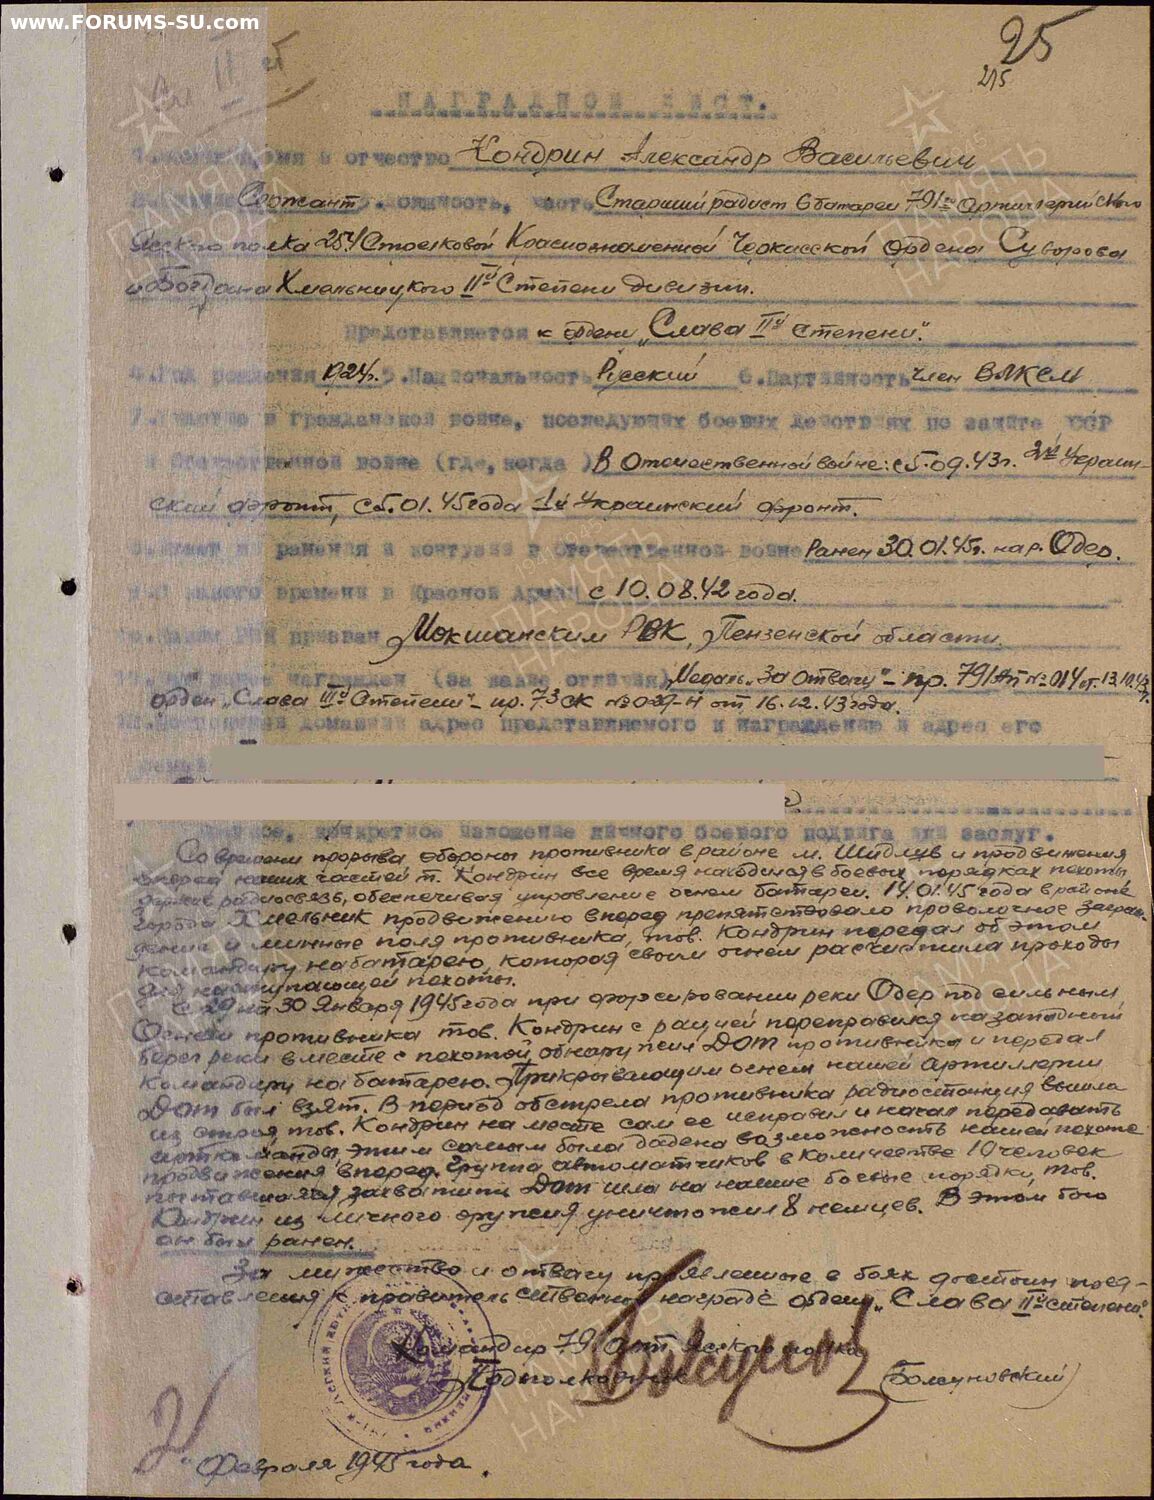 www.FORUMS-SU.com
25
215
НАГРАДНОЙ ЛИСТ.
имя и отчество Кондрин Александр Васильевич
Сержант должность, часть Старший радист 6 батареи 791го Артиллерийского
Ясского полка 254 Стрелковой Краснознаменной Черкасской ордена Суворова
и Богдана Хмельницкого IIй Степени дивизии.
Представляется к ордену „Слава IIй степени".
4. Год рождения 1924г. 5. Национальность Русский 6. Партийность член ВЛКСМ
7. Участие в гражданской войне, последующих боевых действиях по защите СССР
и Отечественной войне (где, когда) В Отечественной войне: с 5.09.43г. 2й Украин-
ский фронт, с 5.01.45 года 1й Украинский фронт.
ранения и контузии в Отечественной войне Ранен 30.01.45г. на р. Одер.
С какого времени в Красной Армии с 10.08.42 года.
Каким РВК призван Мокшанским РВК, Пензенской области.
11. Чем ранее награжден (за какие отличия) Медаль „За отвагу" - пр. 791 АП № 014 от 13.10.43г.
орден „Слава IIIй Степени" - пр. 73 СК № 029-Н от 16.12.43 года.
12. Постоянный домашний адрес представляемого к награждению и адрес его
семьи
Краткое, конкретное изложение личного боевого подвига или заслуг.
Со времени прорыва обороны противника в районе м. Шидлув и продвижения
вперед наших частей т. Кондрин все время находился в боевых порядках пехоты
держав радиосвязь, обеспечивая управление огнем батареи. 14.01.45 года в районе
города Хмельник продвижению вперед препятствовало проволочное заграж-
дение и минные поля противника, тов. Кондрин передал об этом
командиру на батарею, которая своим огнем расчистила проходы
для наступающей пехоты.
С 29 на 30 Января 1945 года при форсировании реки Одер под сильным
Огнем противника тов. Кондрин с рацией переправился на западный
берег реки вместе с пехотой, обнаружил ДОТ противника и передал
Командиру на батарею. Прикрывающим огнем нашей Артиллерии
ДОТ был взят. В период обстрела противника радиостанция вышла
из строя тов. Кондрин на месте сам ее исправил и начал передавать
команды, этим самым была дадена возможность нашей пехоте
продвижения вперед. Группа автоматчиков в количестве 10 человек
пытавшаяся захватить ДОТ шла на нашие боевые порядки, тов.
Кондрин из личного оружия уничтожил 8 немцев. В этом бою
он был ранен.
За мужество и отвагу проявленные в боях достоин пред-
ставления к правительственной награде ордену „Слава IIй степени".
Командир 791 Арт. Ясского полка
Подполковник (Болсуновский)
Февраля 1945 года.
ПАМЯТЬ НАРОДА